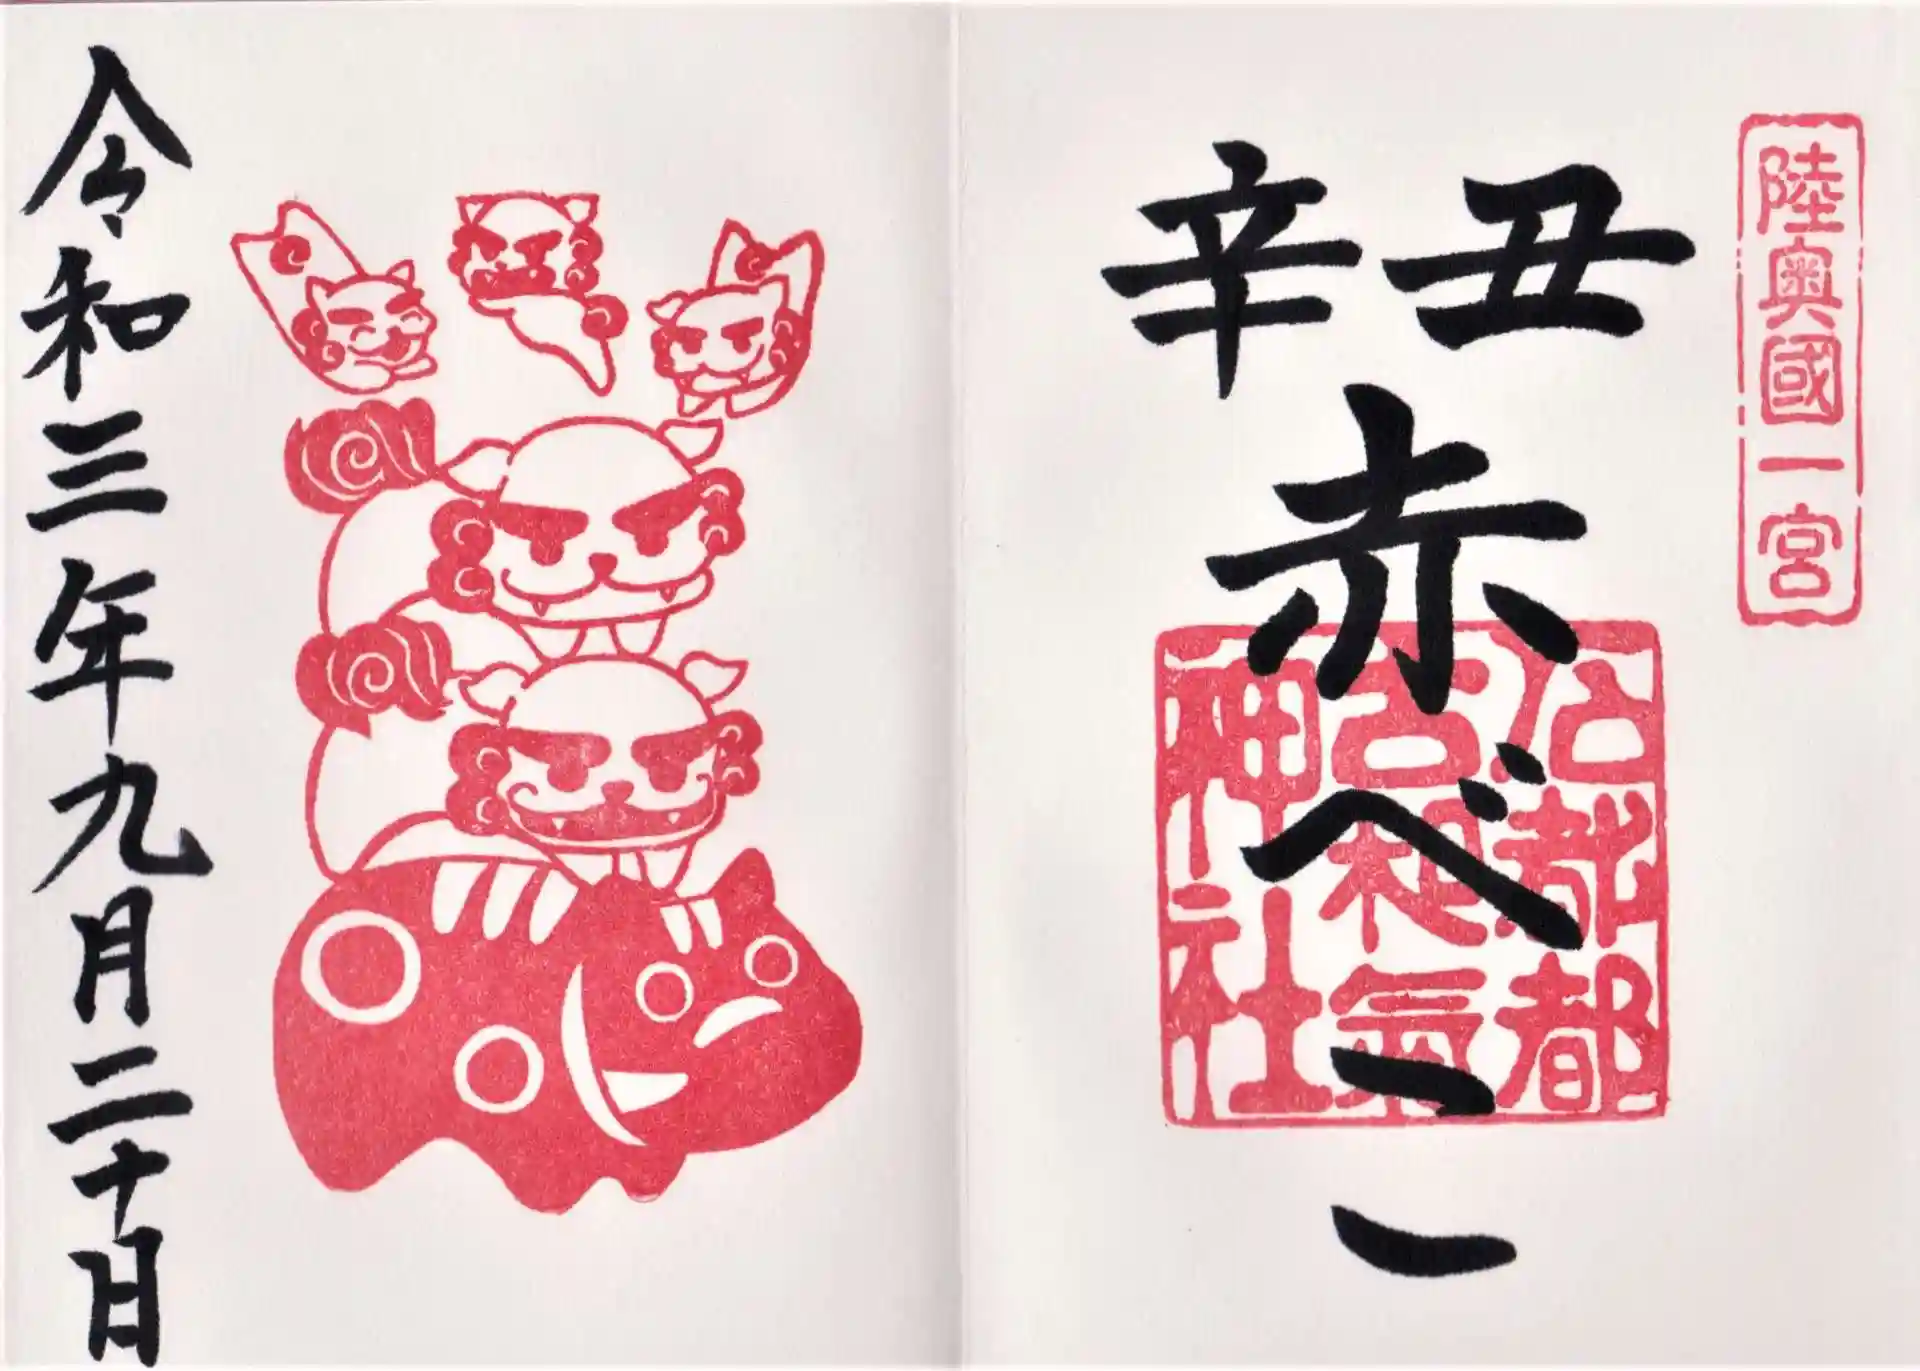 陸奥國一宮
辛丑
赤べこ
石都都
古和氣
神社
令和三年九月二十日